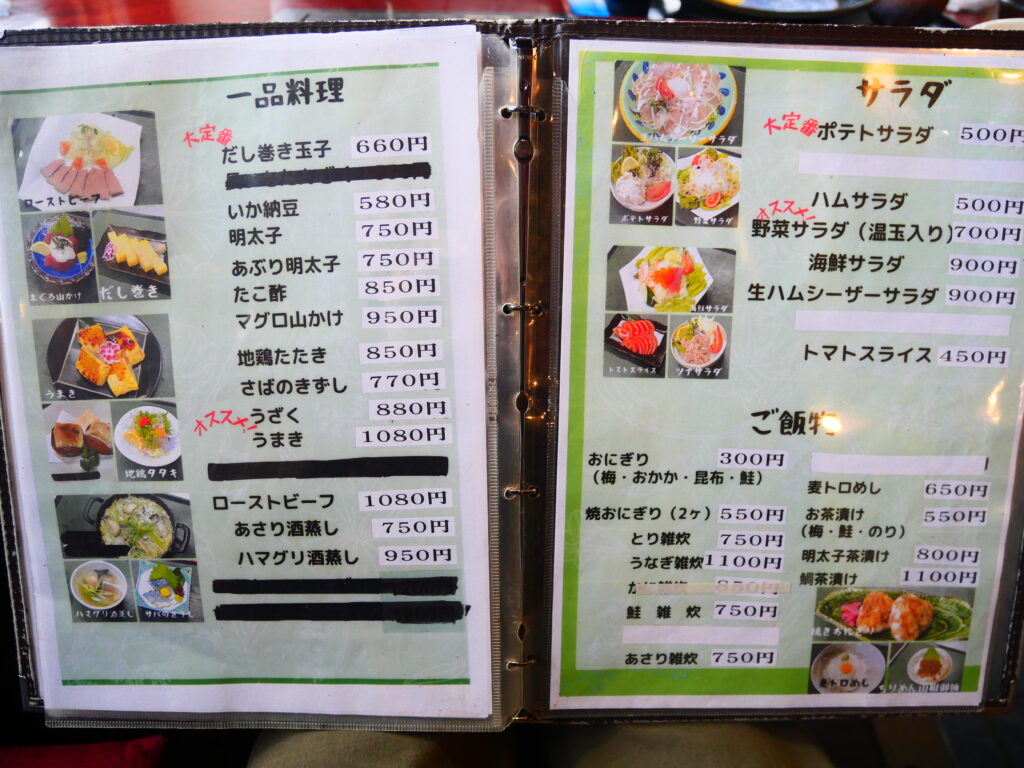 一品料理
大定番
だし巻き玉子 660円
いか納豆 580円
明太子 750円
あぶり明太子 750円
たこ酢 850円
マグロ山かけ 950円
地鶏たたき 850円
さばのきずし 770円
オススメ!
うざく 880円
うまき 1080円
ローストビーフ 1080円
あさり酒蒸し 750円
ハマグリ酒蒸し 950円
ローストビーフ
まぐろ山かけ
だし巻き
うまき
地鶏タタキ
ハマグリ酒蒸し
サバのきずし
サラダ
大定番
ポテトサラダ 500円
ハムサラダ 500円
オススメ!
野菜サラダ(温玉入り) 700円
海鮮サラダ 900円
生ハムシーザーサラダ 900円
トマトスライス 450円
サラダ
ポテトサラダ
野菜サラダ
海鮮サラダ
トマトスライス
ツナサラダ
ご飯物
おにぎり 300円
(梅・おかか・昆布・鮭)
焼おにぎり(2ヶ) 550円
とり雑炊 750円
うなぎ雑炊 1100円
鮭雑炊 750円
あさり雑炊 750円
麦トロめし 650円
お茶漬け 550円
(梅・鮭・のり)
明太子茶漬け 800円
鯛茶漬け 1100円
焼きおにぎり
麦トロめし